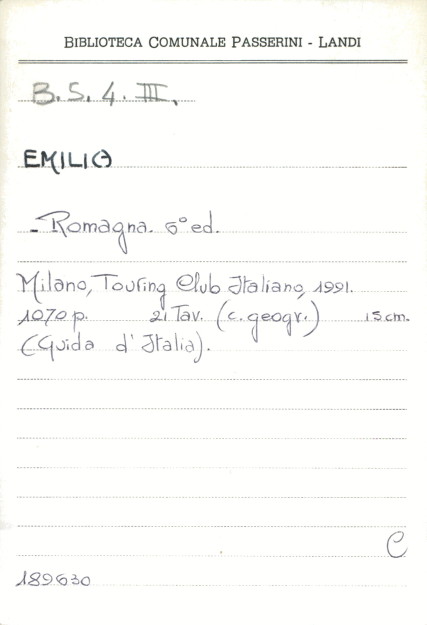 BIBLIOTECA COMUNALE PASSERINI - LANDI
B.S. 4. III.
EMILIA
- Romagna. 6° ed.
Milano, Touring Club Italiano, 1991.
1070 p. 21 Tav. (c. geogr.) 15 cm.
(Guida d'Italia).
C
189630